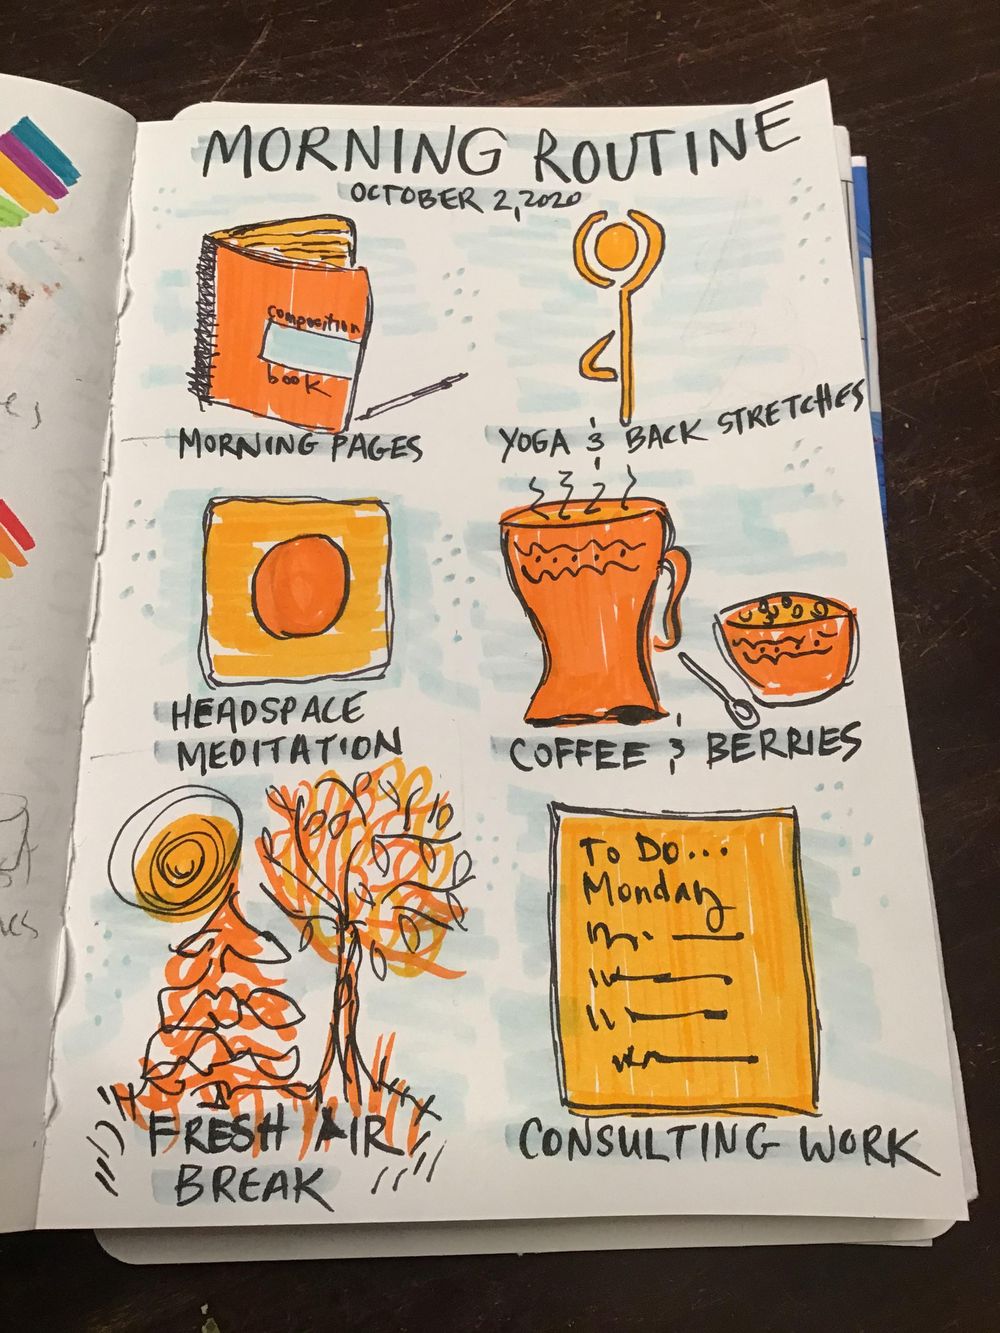 MORNING ROUTINE
OCTOBER 2, 2020
composition
book
MORNING PAGES
YOGA & BACK STRETCHES
HEADSPACE
MEDITATION
COFFEE & BERRIES
To Do...
Monday
FRESH AIR
BREAK
CONSULTING WORK